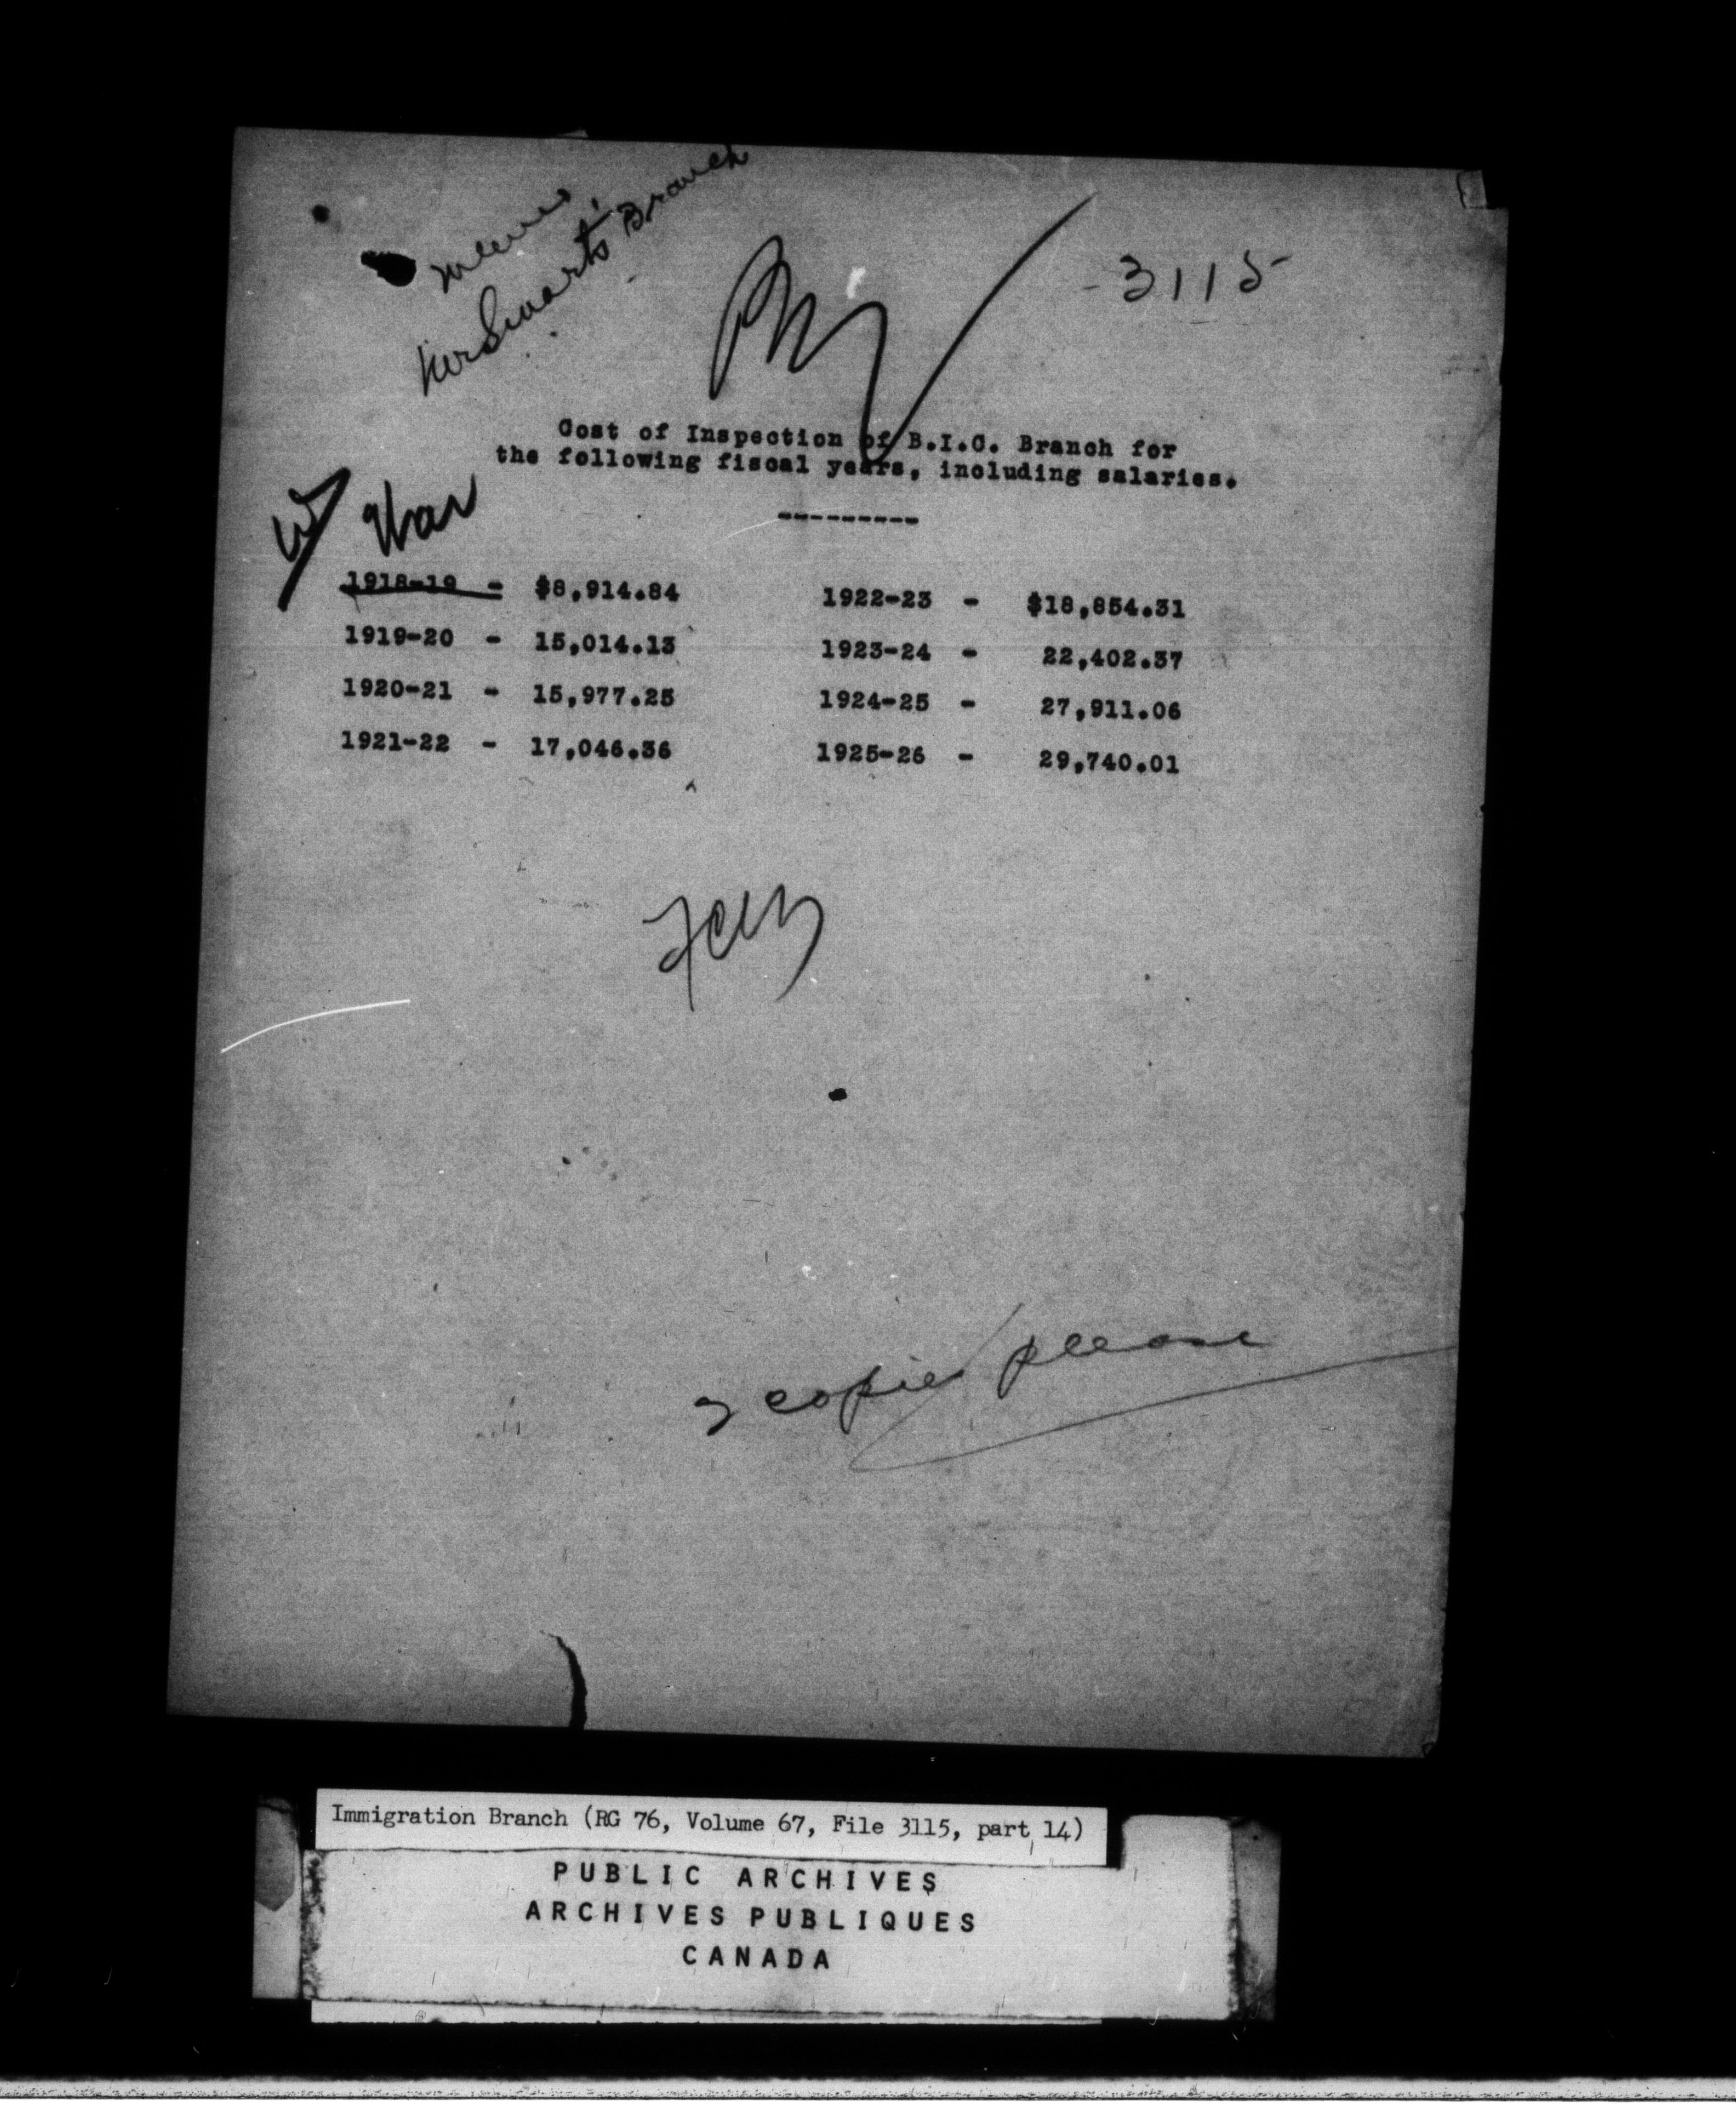 Memo
Mr Smart's Branch
3115
Cost of Inspection of B.I.C. Branch for
the following fiscal years, including salaries.
---------
War
1918-19 - $8,914.84 1922-23 - $18,854.31
1919-20 - 15,014.13 1923-24 - 22,402.37
1920-21 - 15,977.25 1924-25 - 27,911.06
1921-22 - 17,046.36 1925-26 - 29,740.01
copies please
Immigration Branch (RG 76, Volume 67, File 3115, part 14)
PUBLIC ARCHIVES
ARCHIVES PUBLIQUES
CANADA